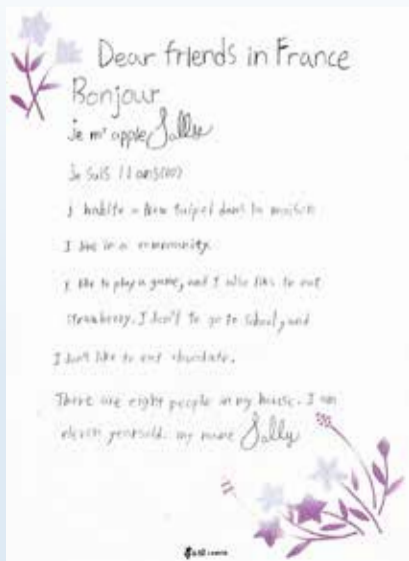 Dear friends in France
Bonjour
Je m' apple Sally
Je suis 11 ans
J habite a New Taipei dans la maison
I live in a community.
I like to play a game, and I also like to eat
strawberry. I don't to go to school, and
I don't like to eat chocolate.
There are eight people in my house. I am
eleven yearsold. my name Sally